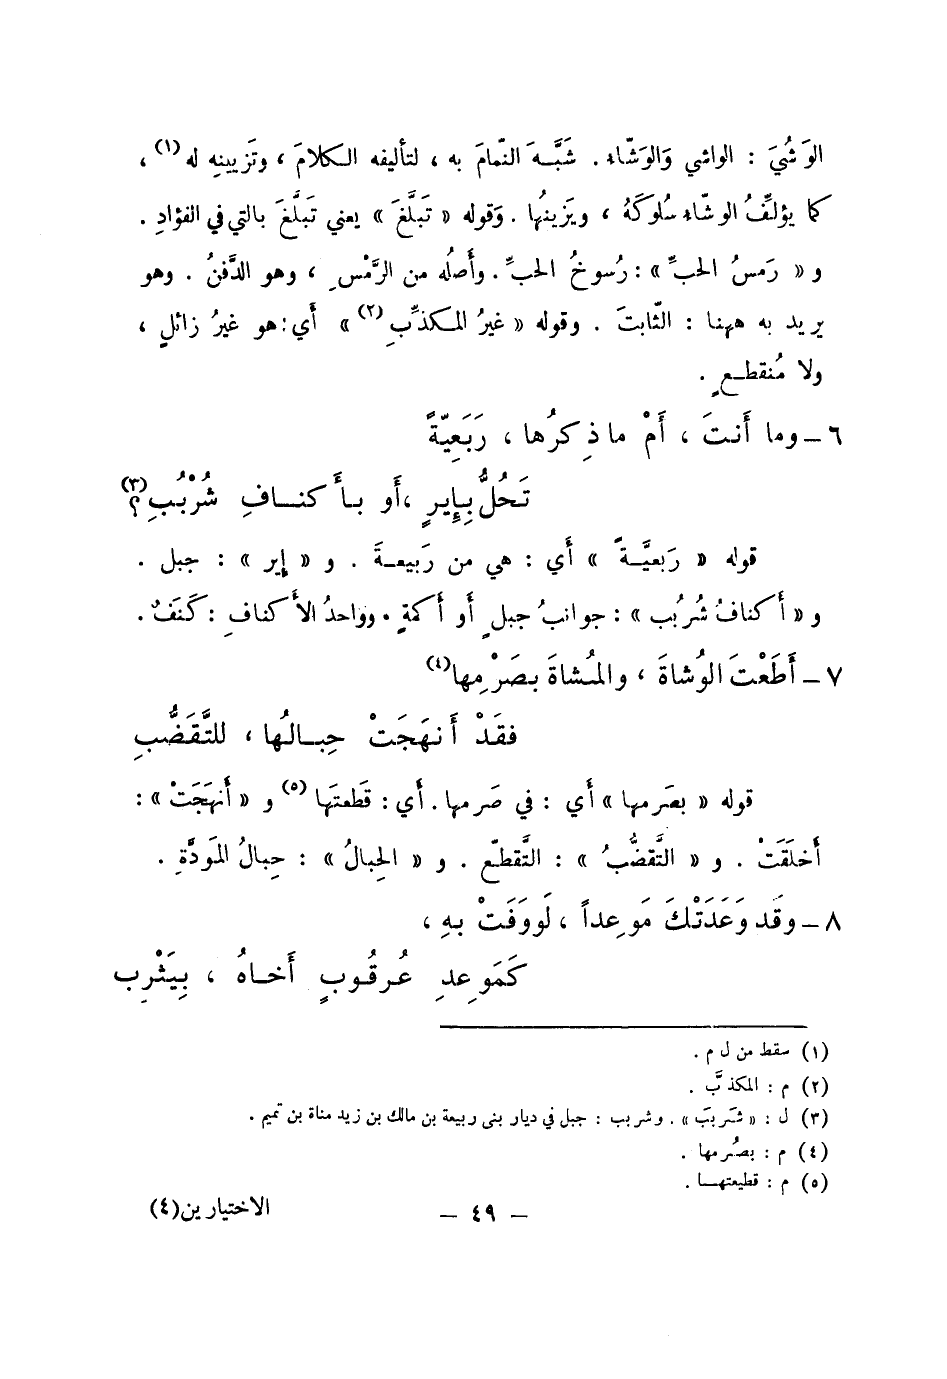 الوَشْيَ : الواشي وَالوَشّاء . شَبَّهَ النّمامَ به ، لتأليفه الكلامَ ، وتَزيينِه له (١) ،
كما يؤلفُ الوشّاء سُلوكَهُ ، ويَزينُها . وَقوله « تَبَلَّغَ » يعني تَبَلَّغَ بالتي في الفؤادِ .
و « رَمسُ الحبِّ » : رُسوخُ الحبِّ . وأصلُه من الرَّمْسِ ، وهو الدَّفنُ . وهو
يريد به ههنا : الثّابتَ . وقوله « غيرُ المكذّبِ (٢) » أي : هو غيرُ زائلٍ ،
ولا مُنقطعٍ .
٦ – وما أَنتَ ، أَمْ ما ذِكرُها ، رَبَعِيّةً
تَحُلُّ بِإِيرٍ ، أَو بأَكنافِ شُرْبُبِ (٣) ؟
قوله « رَبعيَّةً » أَي : هي من رَبيعةَ . و « إير » : جبل .
و « أكنافُ شُربُب » : جوانبُ جبلٍ أو أكمةٍ . وواحدُ الأكنافِ : كَنَفٌ .
٧ – أَطَعْتَ الوُشاةَ ، والمُشاةَ بصَرْمِها (٤)
فقَدْ أَنهَجَتْ حِبالُها ، للتَّقَضُّبِ
قوله « بصَرمها » أَي : في صَرمها . أَي : قَطعتَها (٥) و « أَنهَجَتْ » :
أَخلَقَتْ . و « التَّقضُّبُ » : التَّقطّع . و « الحِبالُ » : حِبالُ المَودَّةِ .
٨ – وقَد وَعَدَتْكَ مَوعِداً ، لَو وَفَتْ بهِ ،
كَمَوعِدِ عُرقُوبٍ أَخاهُ ، بِيَثْرِبِ
(١) سقط من ل م .
(٢) م : المكذَّب .
(٣) ل : « شَربَبَ » . وشربب : جبل في ديار بنى ربيعة بن مالك بن زيد مناة بن تميم .
(٤) م : بصُرمها .
(٥) م : قطيعتها .
– ٤٩ –
الاختيارين (٤)